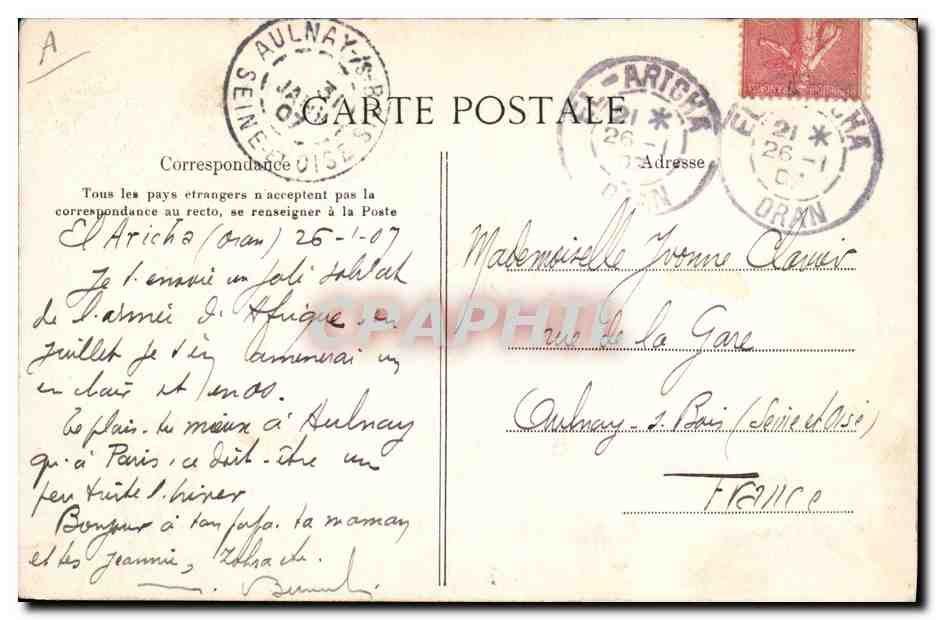 A
AULNAY-S-BOIS
SEINE-&-OISE
07
CARTE POSTALE
EL-ARICHA
21 *
26 -1
07
ORAN
EL-ARICHA
21 *
26 -1
07
ORAN
Correspondance
Tous les pays étrangers n'acceptent pas la
correspondance au recto, se renseigner à la Poste
El Aricha (Oran) 26-1-07
Je t'envoie un joli soldat
de l'armée d'Afrique en
juillet je t'en amènerai un
en chair et en os.
Te plais-tu mieux à Aulnay
qu'à Paris, ce doit-être un
peu triste l'hiver
Bonjour à ton papa ta maman
et tes
Adresse
Mademoiselle Yvonne Clavier
rue de la Gare
Aulnay-s-Bois (Seine et Oise)
France
CPAPHIL